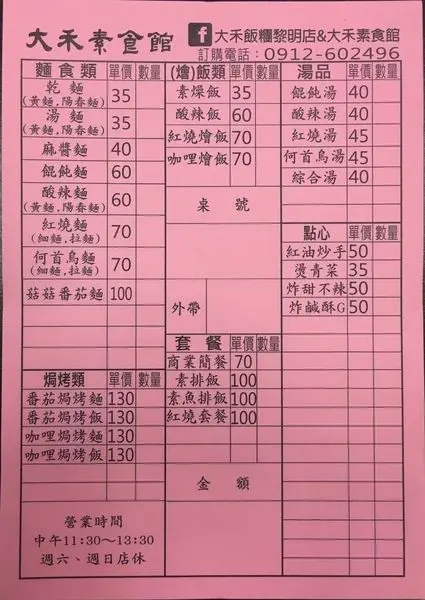 大禾素食館
f 大禾飯糰黎明店&大禾素食館
訂購電話：0912-602496
麵食類 單價 數量
乾麵 35
(黃麵,陽春麵)
湯麵 35
(黃麵,陽春麵)
麻醬麵 40
餛飩麵 60
酸辣麵 60
(黃麵,陽春麵)
紅燒麵 70
(細麵,拉麵)
何首烏麵 70
(細麵,拉麵)
菇菇番茄麵 100
焗烤類 單價 數量
番茄焗烤麵 130
番茄焗烤飯 130
咖哩焗烤麵 130
咖哩焗烤飯 130
營業時間
中午11:30~13:30
週六、週日店休
(燴)飯類 單價 數量
素燥飯 35
酸辣飯 60
紅燒燴飯 70
咖哩燴飯 70
桌號
外帶
套餐 單價 數量
商業簡餐 70
素排飯 100
素魚排飯 100
紅燒套餐 100
金額
湯品 單價 數量
餛飩湯 40
酸辣湯 40
紅燒湯 45
何首烏湯 45
綜合湯 40
點心 單價 數量
紅油炒手 50
燙青菜 35
炸甜不辣 50
炸鹹酥G 50